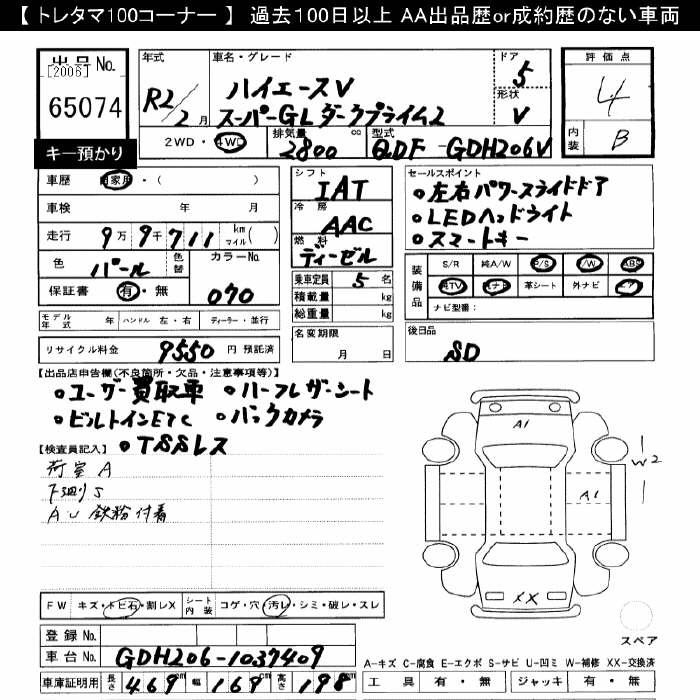 【 トレタマ100コーナー 】 過去100日以上 AA出品歴or成約歴のない車両
出品No.
[2006]
65074
キー預かり
年式
R2/2月
車名・グレード
ハイエースV
スーパーGLダークプライム2
ドア
5
形状
V
評価点
4
内装
B
2WD・4WD
排気量
2800 cc
型式
QDF-GDH206V
車歴 自家用・( )
車検 年 月
走行 9万9千711 km マイル( )
色 パール 色替
カラーNo. 070
保証書 有・無
モデル年式 年 ハンドル 左・右 ディーラー・並行
リサイクル料金 9550 円 預託済
シフト
IAT
冷房
AAC
燃料
ディーゼル
乗車定員 5 名
積載量 kg
総重量 kg
名変期限
月 日
セールスポイント
・左右パワースライドドア
・LEDヘッドライト
・スマートキー
装備品
S/R 純A/W P/S P/W ABS
純TV 純ナビ 革シート 外ナビ エアB
ナビ型番:
後日品
SD
【出品店申告欄(不良箇所・欠品・注意事項等)】
・ユーザー買取車 ・ハーフレザーシート
・ビルトインETC ・バックカメラ
・TSSレス
【検査員記入】
荷室A
下廻りS
AU 鉄粉付着
A1
A1
W2
XX
スペア
FW キズ・トビ石・割レX シート内装 コゲ・穴・汚レ・シミ・破レ・スレ
登録No.
車台No. GDH206-1037409
車庫証明用 長さ 469 cm 幅 169 cm 高さ 198 cm
A-キズ C-腐食 E-エクボ S-サビ U-凹ミ W-補修 XX-交換済
工具 有・無 ジャッキ 有・無